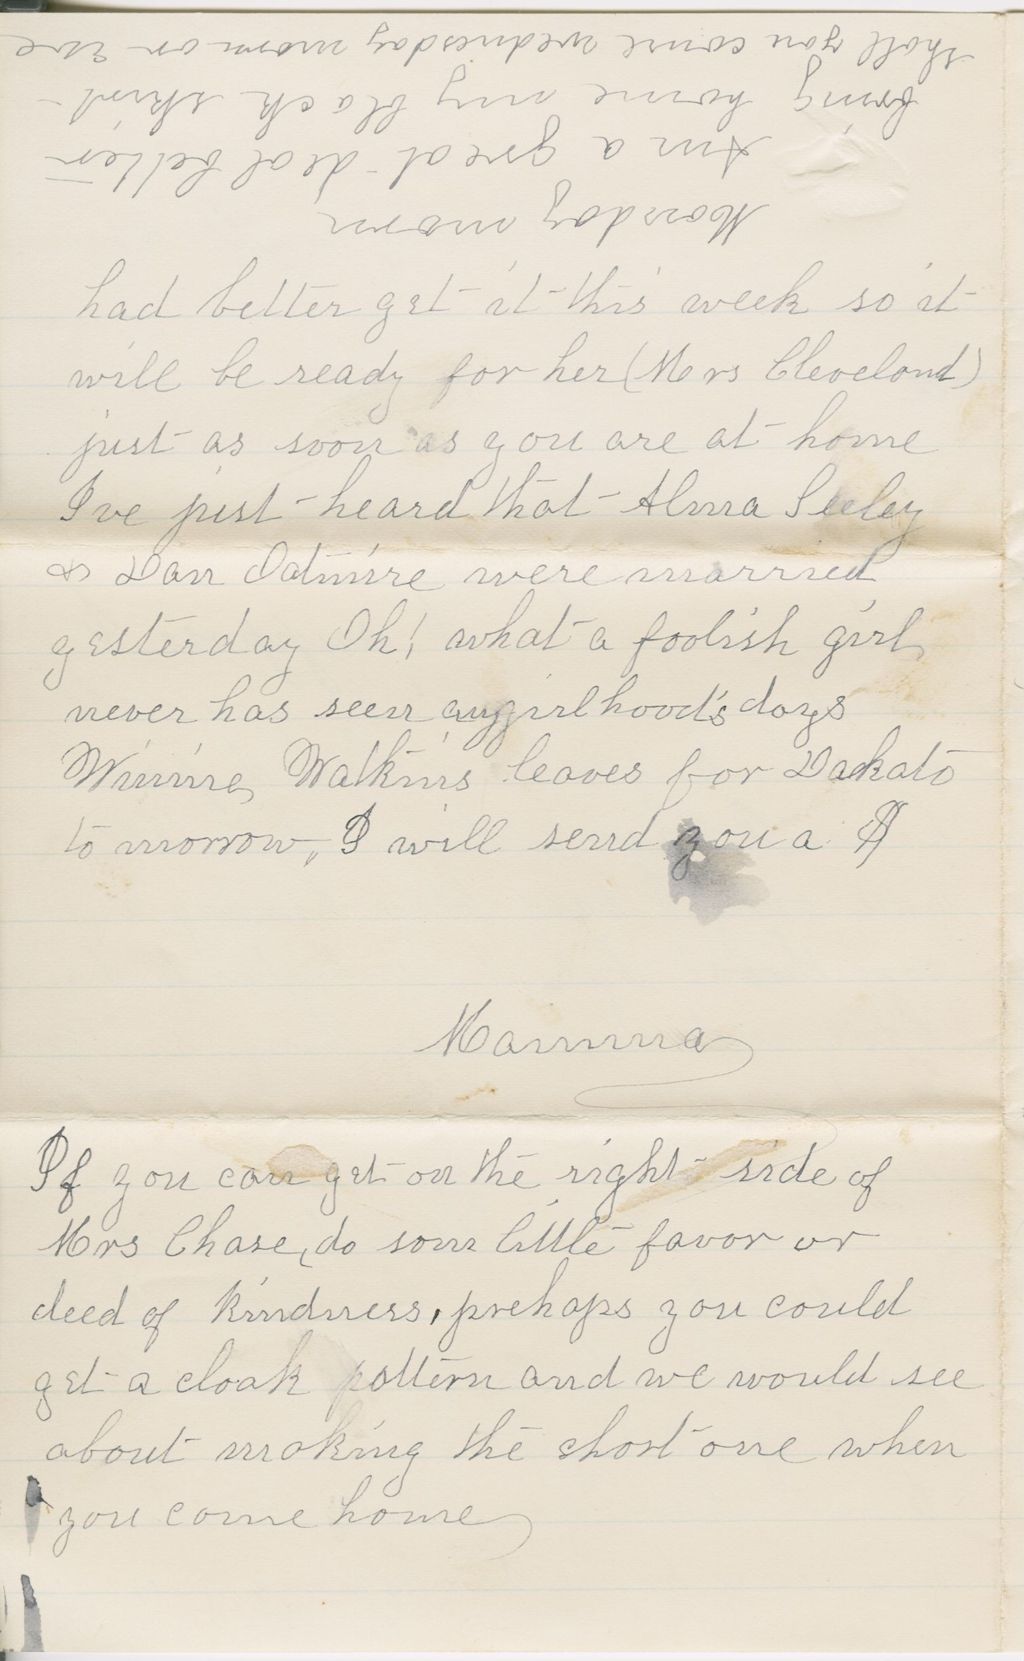 had better get it this week so it
will be ready for her (Mrs Cleveland)
just as soon as you are at home
I've just heard that Alma Seeley
& Dan Odmire were married
yesterday Oh! what a foolish girl
never has seen any girlhood's days
Winnie Watkins leaves for Dakato
to morrow, I will send you a $
Mamma
If you can get on the right side of
Mrs Chase, do som little favor or
deed of kindness, prehaps you could
get a cloak pattern and we would see
about making the short one when
you come home
Monday morn
Am a great deal better
bring home my black skirt
shall you come wednesday morn or Eve